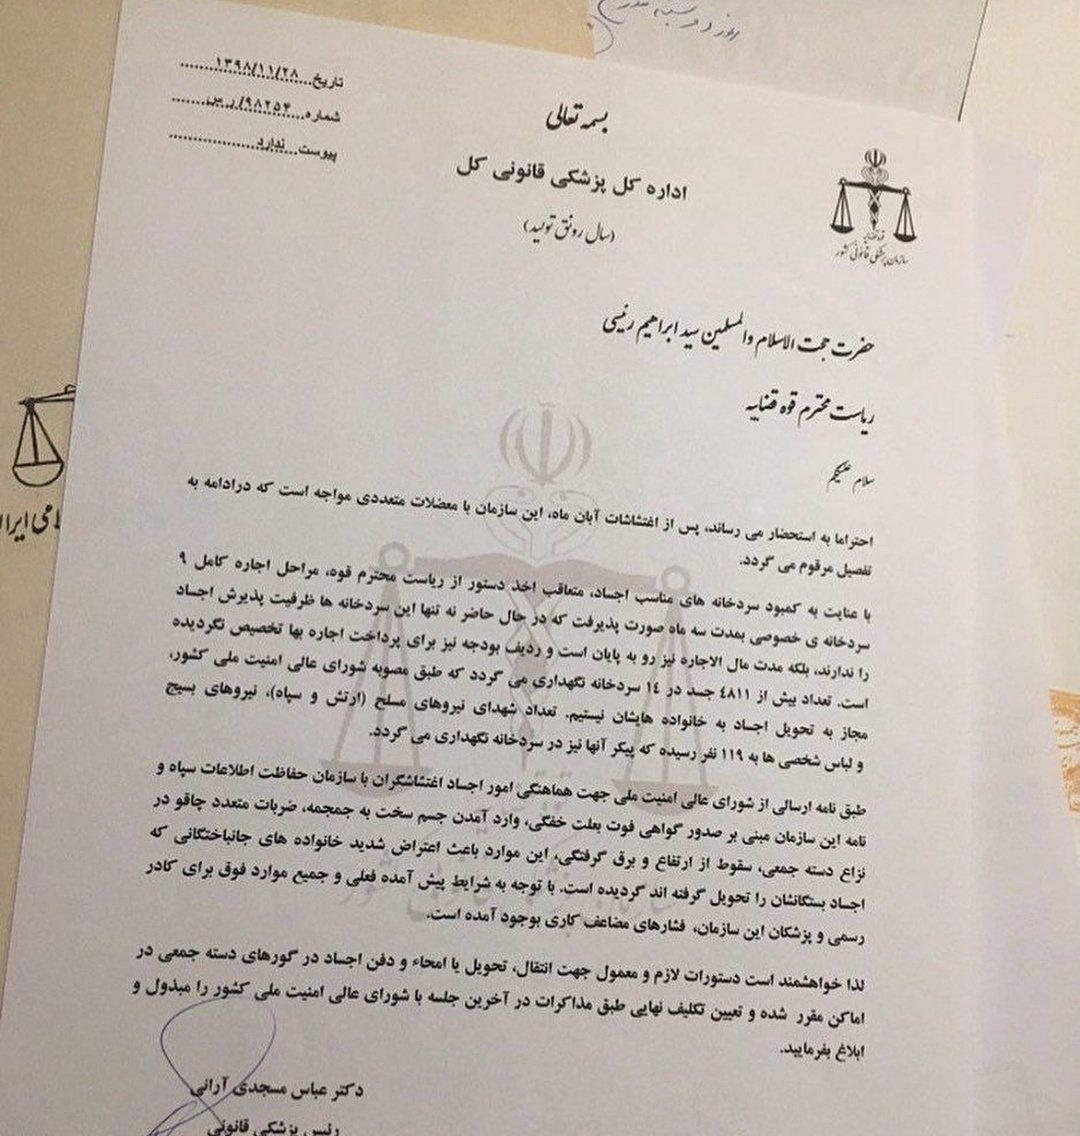 تاریخ...۱۳۹۸/۱۱/۲۸
شماره...۹۸۲۵۴/ر.س
پیوست...ندارد
بسمه تعالی
اداره کل پزشکی قانونی کل
(سال رونق تولید)
قوه قضاییه
سازمان پزشکی قانونی کشور
حضرت حجت الاسلام والمسلمین سید ابراهیم رئیسی
ریاست محترم قوه قضاییه
سلام علیکم
احتراما به استحضار می رساند، پس از اغتشاشات آبان ماه، این سازمان با معضلات متعددی مواجه است که درادامه به
تفصیل مرقوم می گردد.
با عنایت به کمبود سردخانه های مناسب اجساد، متعاقب اخذ دستور از ریاست محترم قوه، مراحل اجاره کامل ۹
سردخانه ی خصوصی بمدت سه ماه صورت پذیرفت که در حال حاضر نه تنها این سردخانه ها ظرفیت پذیرش اجساد
را ندارند، بلکه مدت مال الاجاره نیز رو به پایان است و ردیف بودجه نیز برای پرداخت اجاره بها تخصیص نگردیده
است. تعداد بیش از ۴۸۱۱ جسد در ۱۴ سردخانه نگهداری می گردد که طبق مصوبه شورای عالی امنیت ملی کشور،
مجاز به تحویل اجساد به خانواده هایشان نیستیم. تعداد شهدای نیروهای مسلح (ارتش و سپاه)، نیروهای بسیج
و لباس شخصی ها به ۱۱۹ نفر رسیده که پیکر آنها نیز در سردخانه نگهداری می گردد.
طبق نامه ارسالی از شورای عالی امنیت ملی جهت هماهنگی امور اجساد اغتشاشگران با سازمان حفاظت اطلاعات سپاه و
نامه این سازمان مبنی بر صدور گواهی فوت بعلت خفگی، وارد آمدن جسم سخت به جمجمه، ضربات متعدد چاقو در
نزاع دسته جمعی، سقوط از ارتفاع و برق گرفتگی، این موارد باعث اعتراض شدید خانواده های جانباختگانی که
اجساد بستگانشان را تحویل گرفته اند گردیده است. با توجه به شرایط پیش آمده فعلی و جمیع موارد فوق برای کادر
رسمی و پزشکان این سازمان، فشارهای مضاعف کاری بوجود آمده است.
لذا خواهشمند است دستورات لازم و معمول جهت انتقال، تحویل یا امحاء و دفن اجساد در گورهای دسته جمعی در
اماکن مقرر شده و تعیین تکلیف نهایی طبق مذاکرات در آخرین جلسه با شورای عالی امنیت ملی کشور را مبذول و
ابلاغ بفرمایید.
دکتر عباس مسجدی آرانی
رئیس پزشکی قانونی